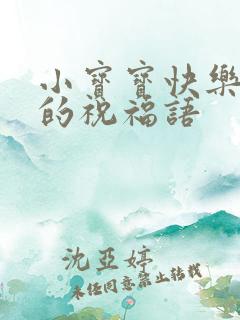 小寶寶快樂
的祝福語
沈亞婷
未经同意禁止转载